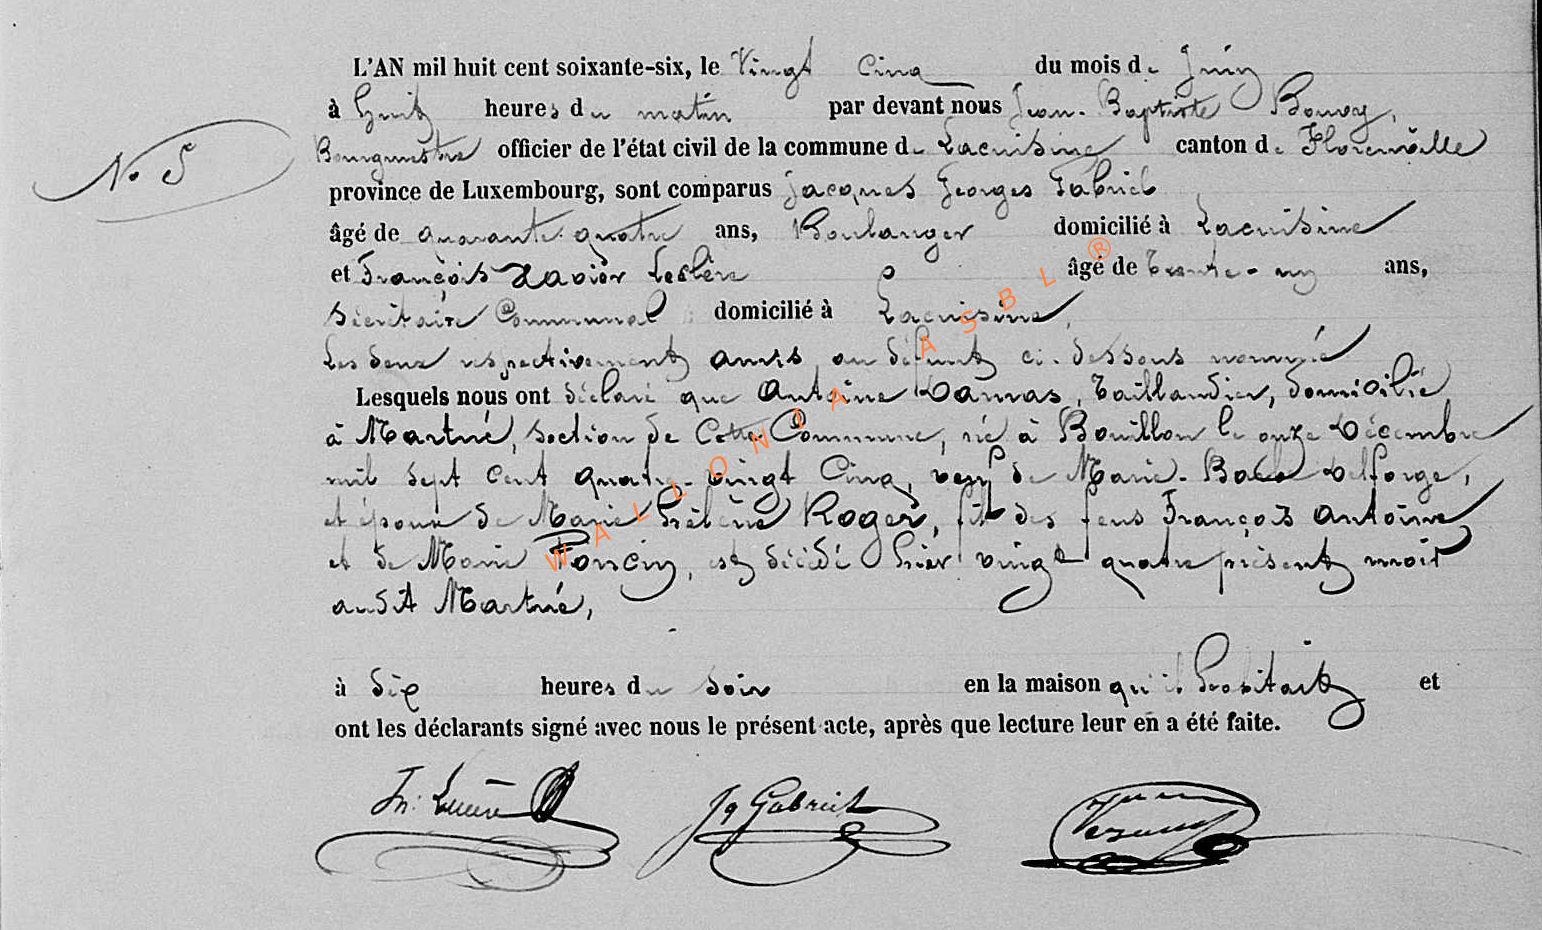 L'AN mil huit cent soixante-six, le Vingt Cinq du mois de Juin
à Huit heures du matin par devant nous Jean-Baptiste
N° 5
Bourgmestre officier de l'état civil de la commune de Lacuisine canton de Florenville
province de Luxembourg, sont comparus Jacques Georges Gabriel
âgé de quarante-quatre ans, Boulanger domicilié à Lacuisine
et François Xavier Leclère âgé de trente-un ans,
Secrétaire Communal domicilié à Lacuisine,
Les deux respectivement amis au défunt ci-dessous nommé
Lesquels nous ont déclaré que Antoine Damas, Taillandier, domicilié
à Martué, section de Cette Commune, né à Bouillon le onze Décembre
mil sept cent quatre-vingt Cinq, veuf de Marie- Delforge,
et époux de Marie Hélène Roger, fils des feus François Antoine
et de Marie Poncin, est décédé hier vingt quatre présent mois
audit Martué,
à dix heures du soir en la maison qu'il habitait et
ont les déclarants signé avec nous le présent acte, après que lecture leur en a été faite.
Jq Gabriel
WALLONIA ASBL ®